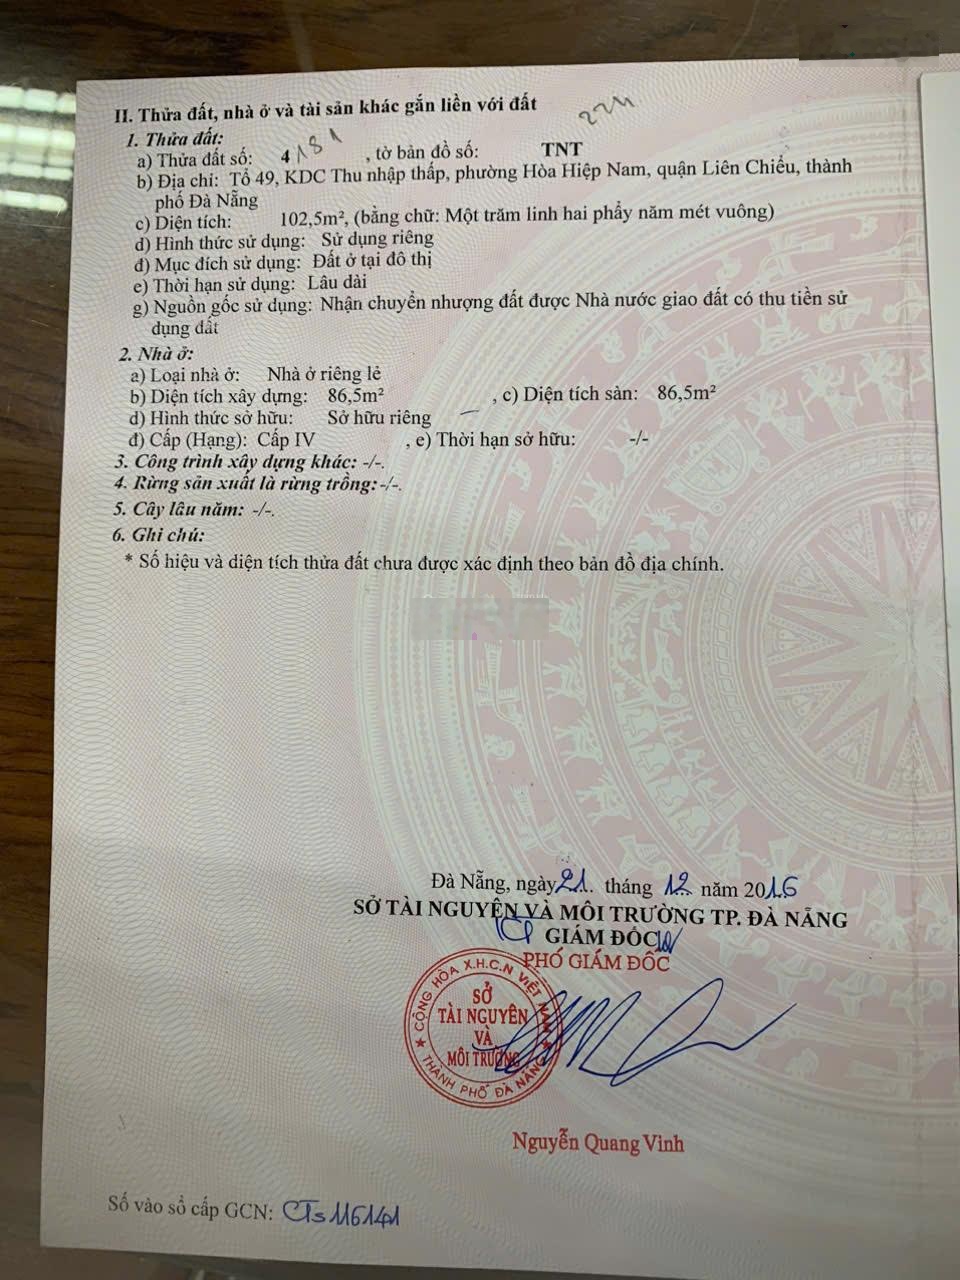 II. Thửa đất, nhà ở và tài sản khác gắn liền với đất
1. Thửa đất:
a) Thửa đất số: 4 181 , tờ bản đồ số: TNT 224
b) Địa chỉ: Tổ 49, KDC Thu nhập thấp, phường Hòa Hiệp Nam, quận Liên Chiểu, thành
phố Đà Nẵng
c) Diện tích: 102,5m², (bằng chữ: Một trăm linh hai phẩy năm mét vuông)
d) Hình thức sử dụng: Sử dụng riêng
đ) Mục đích sử dụng: Đất ở tại đô thị
e) Thời hạn sử dụng: Lâu dài
g) Nguồn gốc sử dụng: Nhận chuyển nhượng đất được Nhà nước giao đất có thu tiền sử
dụng đất
2. Nhà ở:
a) Loại nhà ở: Nhà ở riêng lẻ
b) Diện tích xây dựng: 86,5m² , c) Diện tích sàn: 86,5m²
d) Hình thức sở hữu: Sở hữu riêng
đ) Cấp (Hạng): Cấp IV , e) Thời hạn sở hữu: -/-
3. Công trình xây dựng khác: -/-.
4. Rừng sản xuất là rừng trồng:-/-.
5. Cây lâu năm: -/-.
6. Ghi chú:
* Số hiệu và diện tích thửa đất chưa được xác định theo bản đồ địa chính.
Đà Nẵng, ngày 21 tháng 12 năm 2016
SỞ TÀI NGUYÊN VÀ MÔI TRƯỜNG TP. ĐÀ NẴNG
GIÁM ĐỐC
PHÓ GIÁM ĐỐC
CỘNG HÒA X.H.C.N VIỆT NAM
SỞ
TÀI NGUYÊN
VÀ
MÔI TRƯỜNG
THÀNH PHỐ ĐÀ NẴNG
Nguyễn Quang Vinh
Số vào sổ cấp GCN: CTs116141